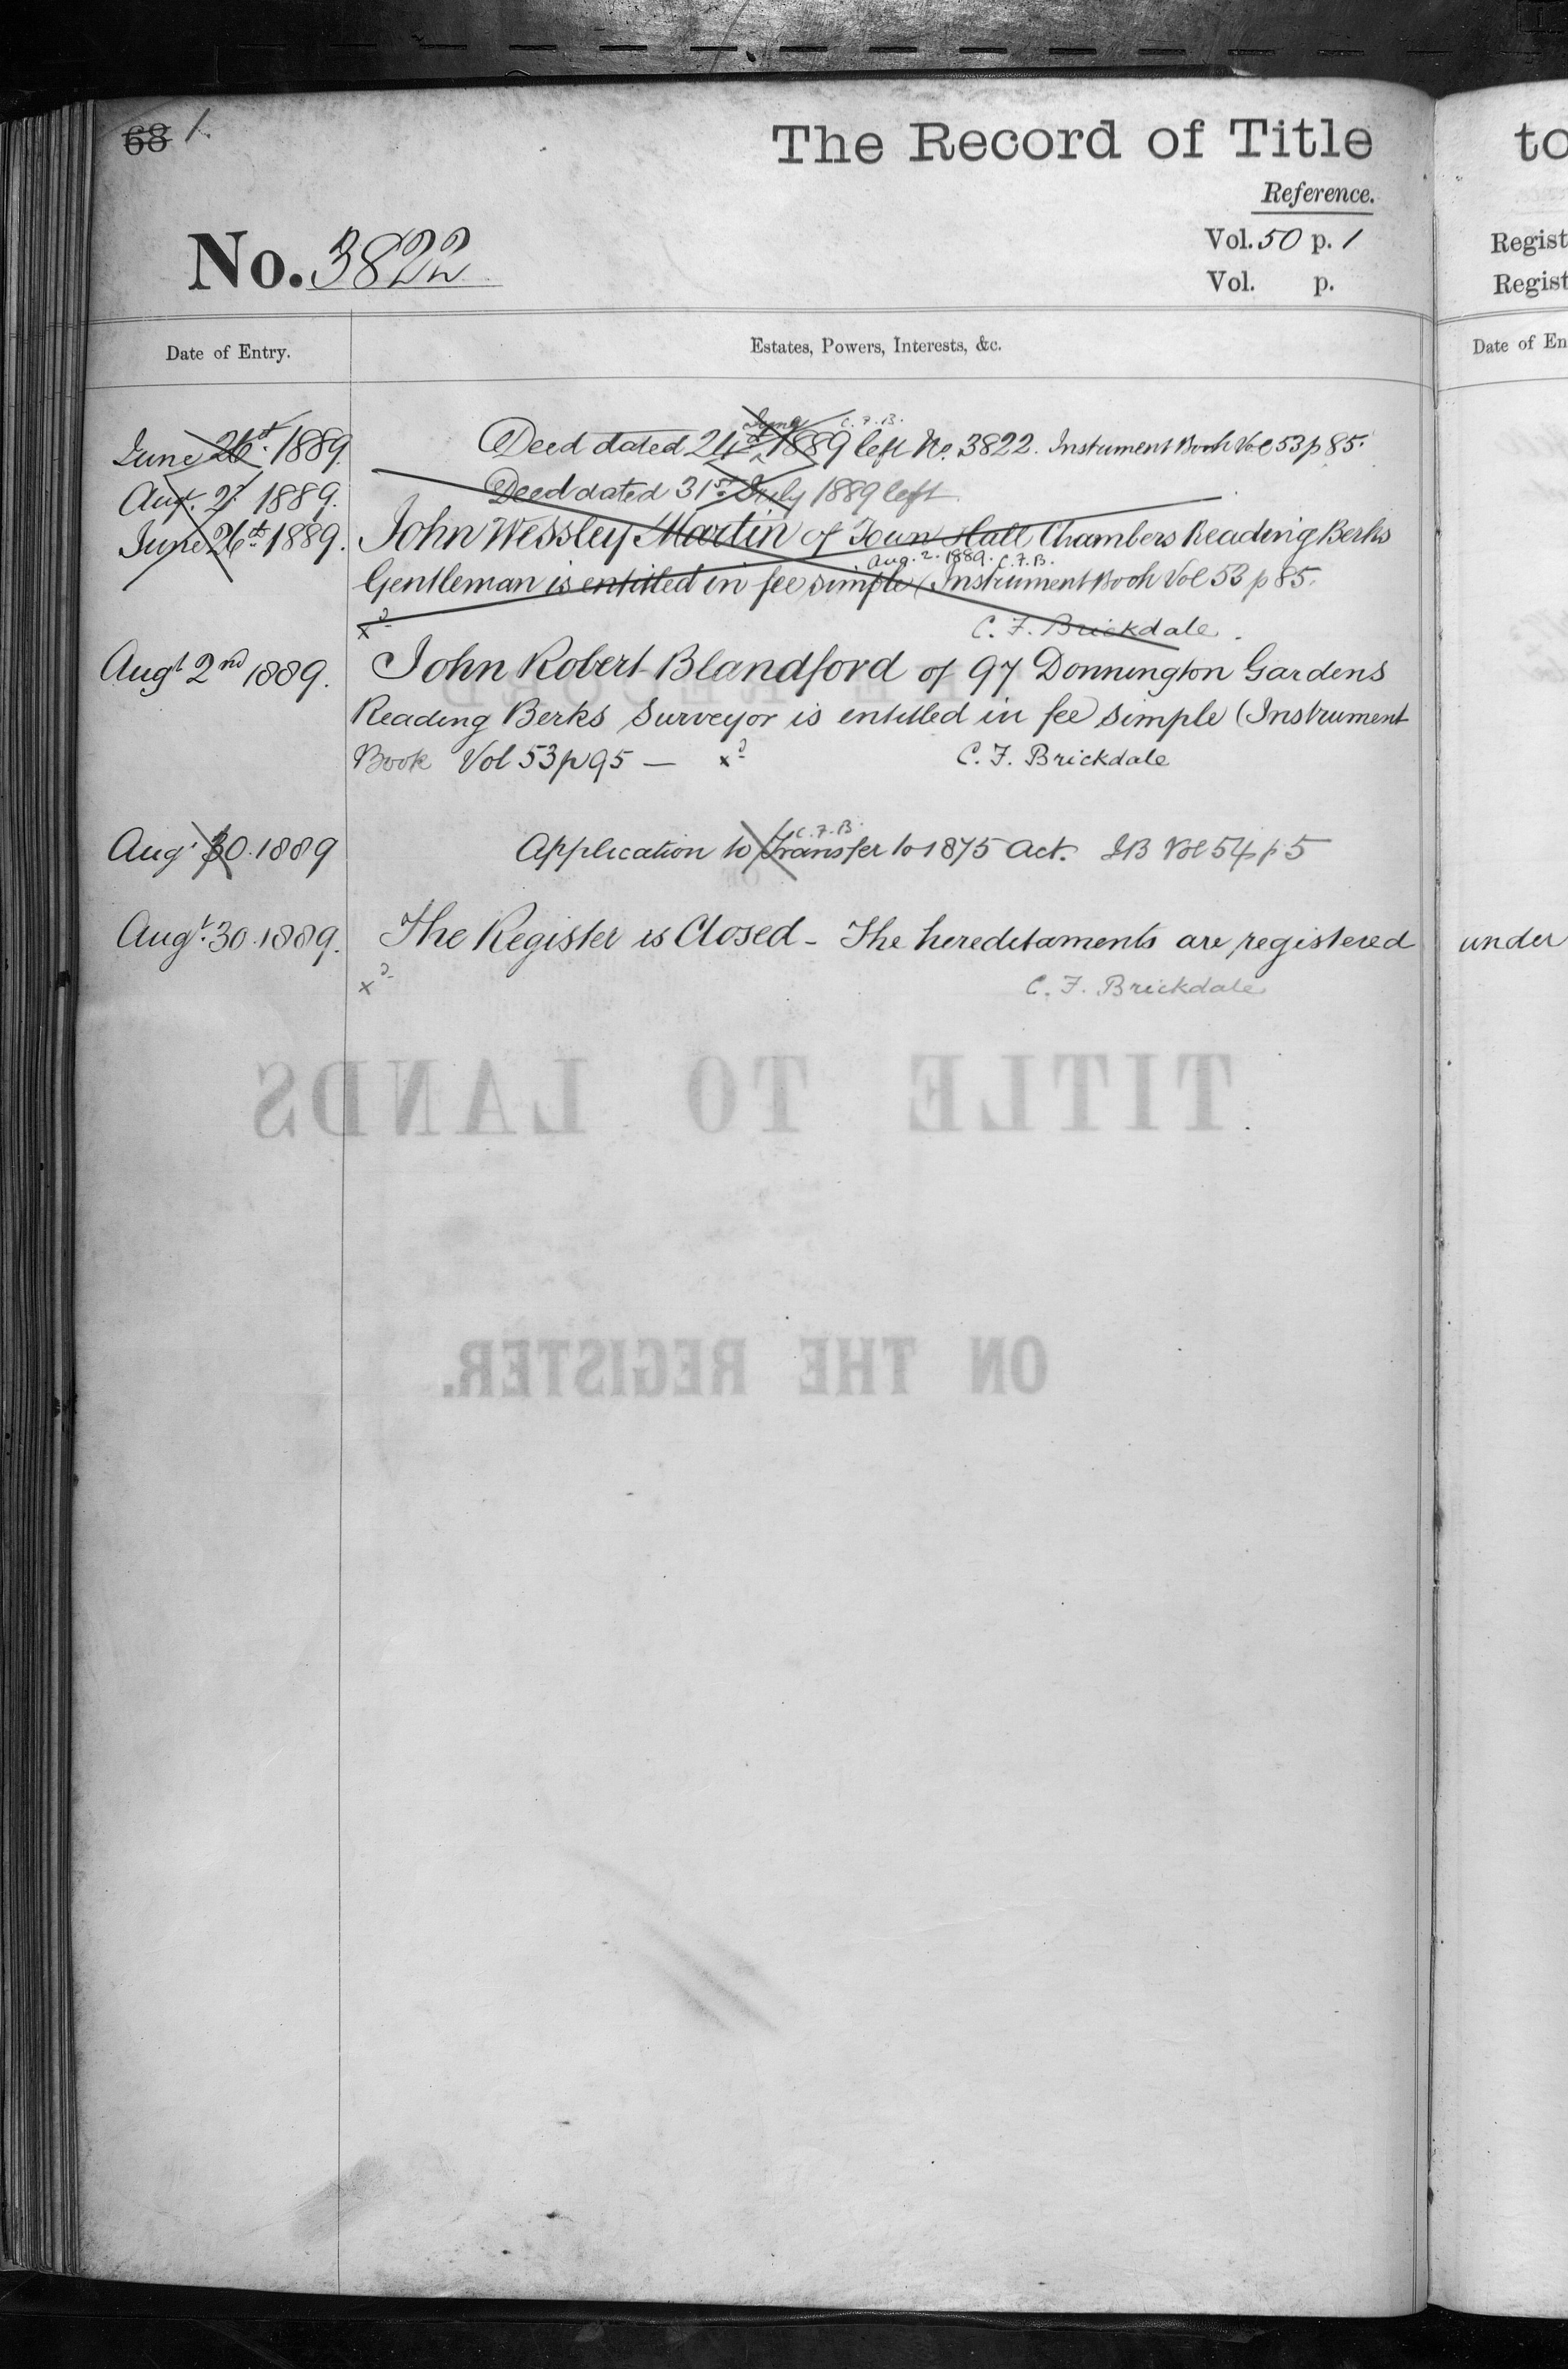 68 1.
The Record of Title
Reference.
No. 3822
Vol. 50 p. 1
Vol. p.
Date of Entry.
Estates, Powers, Interests, &c.
June C.F.B.
June 26th 1889. Deed dated 24th 1889 left No. 3822. Instrument Book Vol 53 p 85.
Aug. 2d 1889. Deed dated 31st July 1889 left
June 26th 1889. John Wessley Martin of Town Hall Chambers Reading Berks
Aug. 2. 1889. C.F.B.
Gentleman is entitled in fee simple (Instrument Book Vol 53 p 85.
C. F. Brickdale.
Augt 2nd 1889. John Robert Blandford of 97 Donnington Gardens
Reading Berks Surveyor is entitled in fee simple (Instrument
Book Vol 53 p 95 — C. F. Brickdale
C.F.B.
Augt 30. 1889 Application to Transfer to 1875 Act. IB Vol 54 p 5
Augt. 30. 1889. The Register is Closed - The hereditaments are registered
C. F. Brickdale
TITLE TO LANDS
ON THE REGISTER.
to
Regist
Regist
Date of En
under